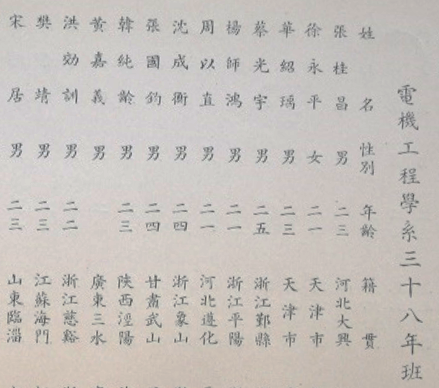 電機工程學系三十八年班
姓名 性別 年齡 籍貫
張桂昌 男 二三 河北大興
徐永平 女 二一 天津市
華紹瑀 男 二三 天津市
蔡光宇 男 二五 浙江鄞縣
楊師鴻 男 二一 浙江平陽
周以直 男 二一 河北遵化
沈成衡 男 二四 浙江象山
張國鈞 男 二四 甘肅武山
韓純齡 男 二三 陝西涇陽
黃嘉義 男 廣東三水
洪効訓 男 二二 浙江慈谿
樊靖 男 二三 江蘇海門
宋居 男 二三 山東臨淄